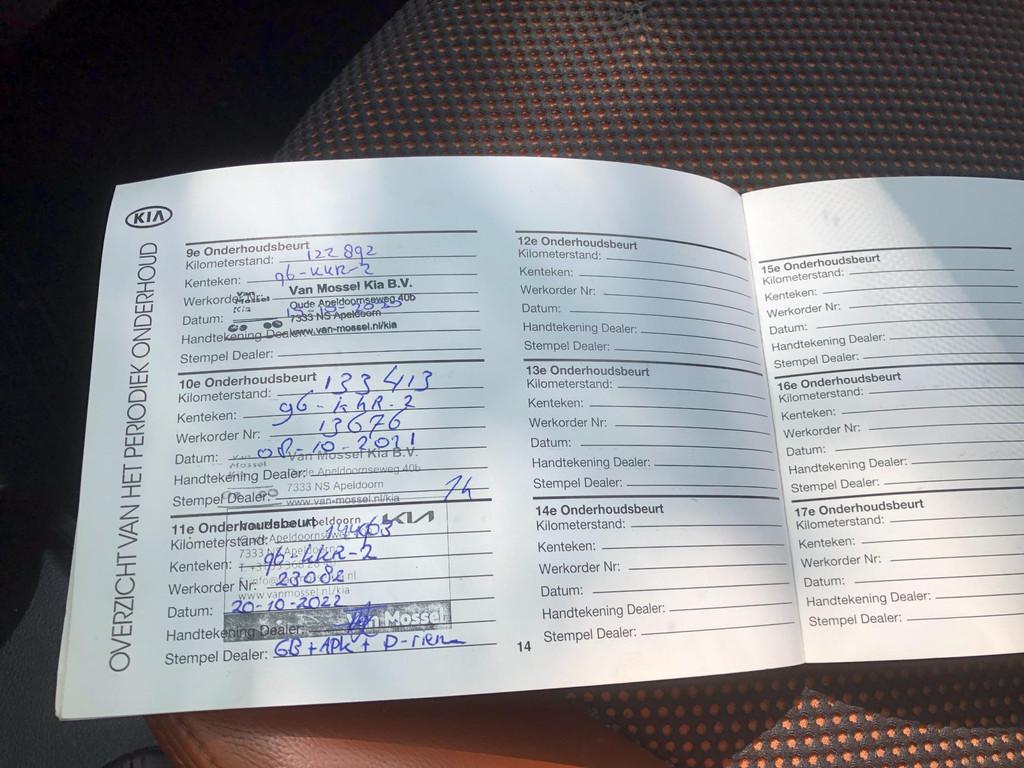 KIA
OVERZICHT VAN HET PERIODIEK ONDERHOUD
9e Onderhoudsbeurt
Kilometerstand: 122892
Kenteken: 96-KKR-2
Werkorder Van Mossel Kia B.V.
Van Mossel Kia
Oude Apeldoornseweg 40b
Datum: 7333 NS Apeldoorn
Handtekening Dealer: www.van-mossel.nl/kia
Stempel Dealer:
10e Onderhoudsbeurt
Kilometerstand: 133413
Kenteken: 96-KKR-2
Werkorder Nr: 13676
Datum: 08-10-2021
Mossel Van Mossel Kia B.V.
Handtekening Dealer: Oude Apeldoornseweg 40b
7333 NS Apeldoorn
Stempel Dealer: www.van-mossel.nl/kia
11e Onderhoudsbeurt Apeldoorn KIA
Kilometerstand: 144403
7333 Apeldoorn
Kenteken: 96-KKR-2
Werkorder Nr: 23082
www.vanmossel.nl/kia
Datum: 20-10-2022
Handtekening Dealer: Van Mossel
Stempel Dealer: GB + APK +
12e Onderhoudsbeurt
Kilometerstand:
Kenteken:
Werkorder Nr:
Datum:
Handtekening Dealer:
Stempel Dealer:
13e Onderhoudsbeurt
Kilometerstand:
Kenteken:
Werkorder Nr:
Datum:
Handtekening Dealer:
Stempel Dealer:
14e Onderhoudsbeurt
Kilometerstand:
Kenteken:
Werkorder Nr:
Datum:
Handtekening Dealer:
Stempel Dealer:
14
15e Onderhoudsbeurt
Kilometerstand:
Kenteken:
Werkorder Nr:
Datum:
Handtekening Dealer:
Stempel Dealer:
16e Onderhoudsbeurt
Kilometerstand:
Kenteken:
Werkorder Nr:
Datum:
Handtekening Dealer:
Stempel Dealer:
17e Onderhoudsbeurt
Kilometerstand:
Kenteken:
Werkorder Nr:
Datum:
Handtekening Dealer:
Stempel Dealer: